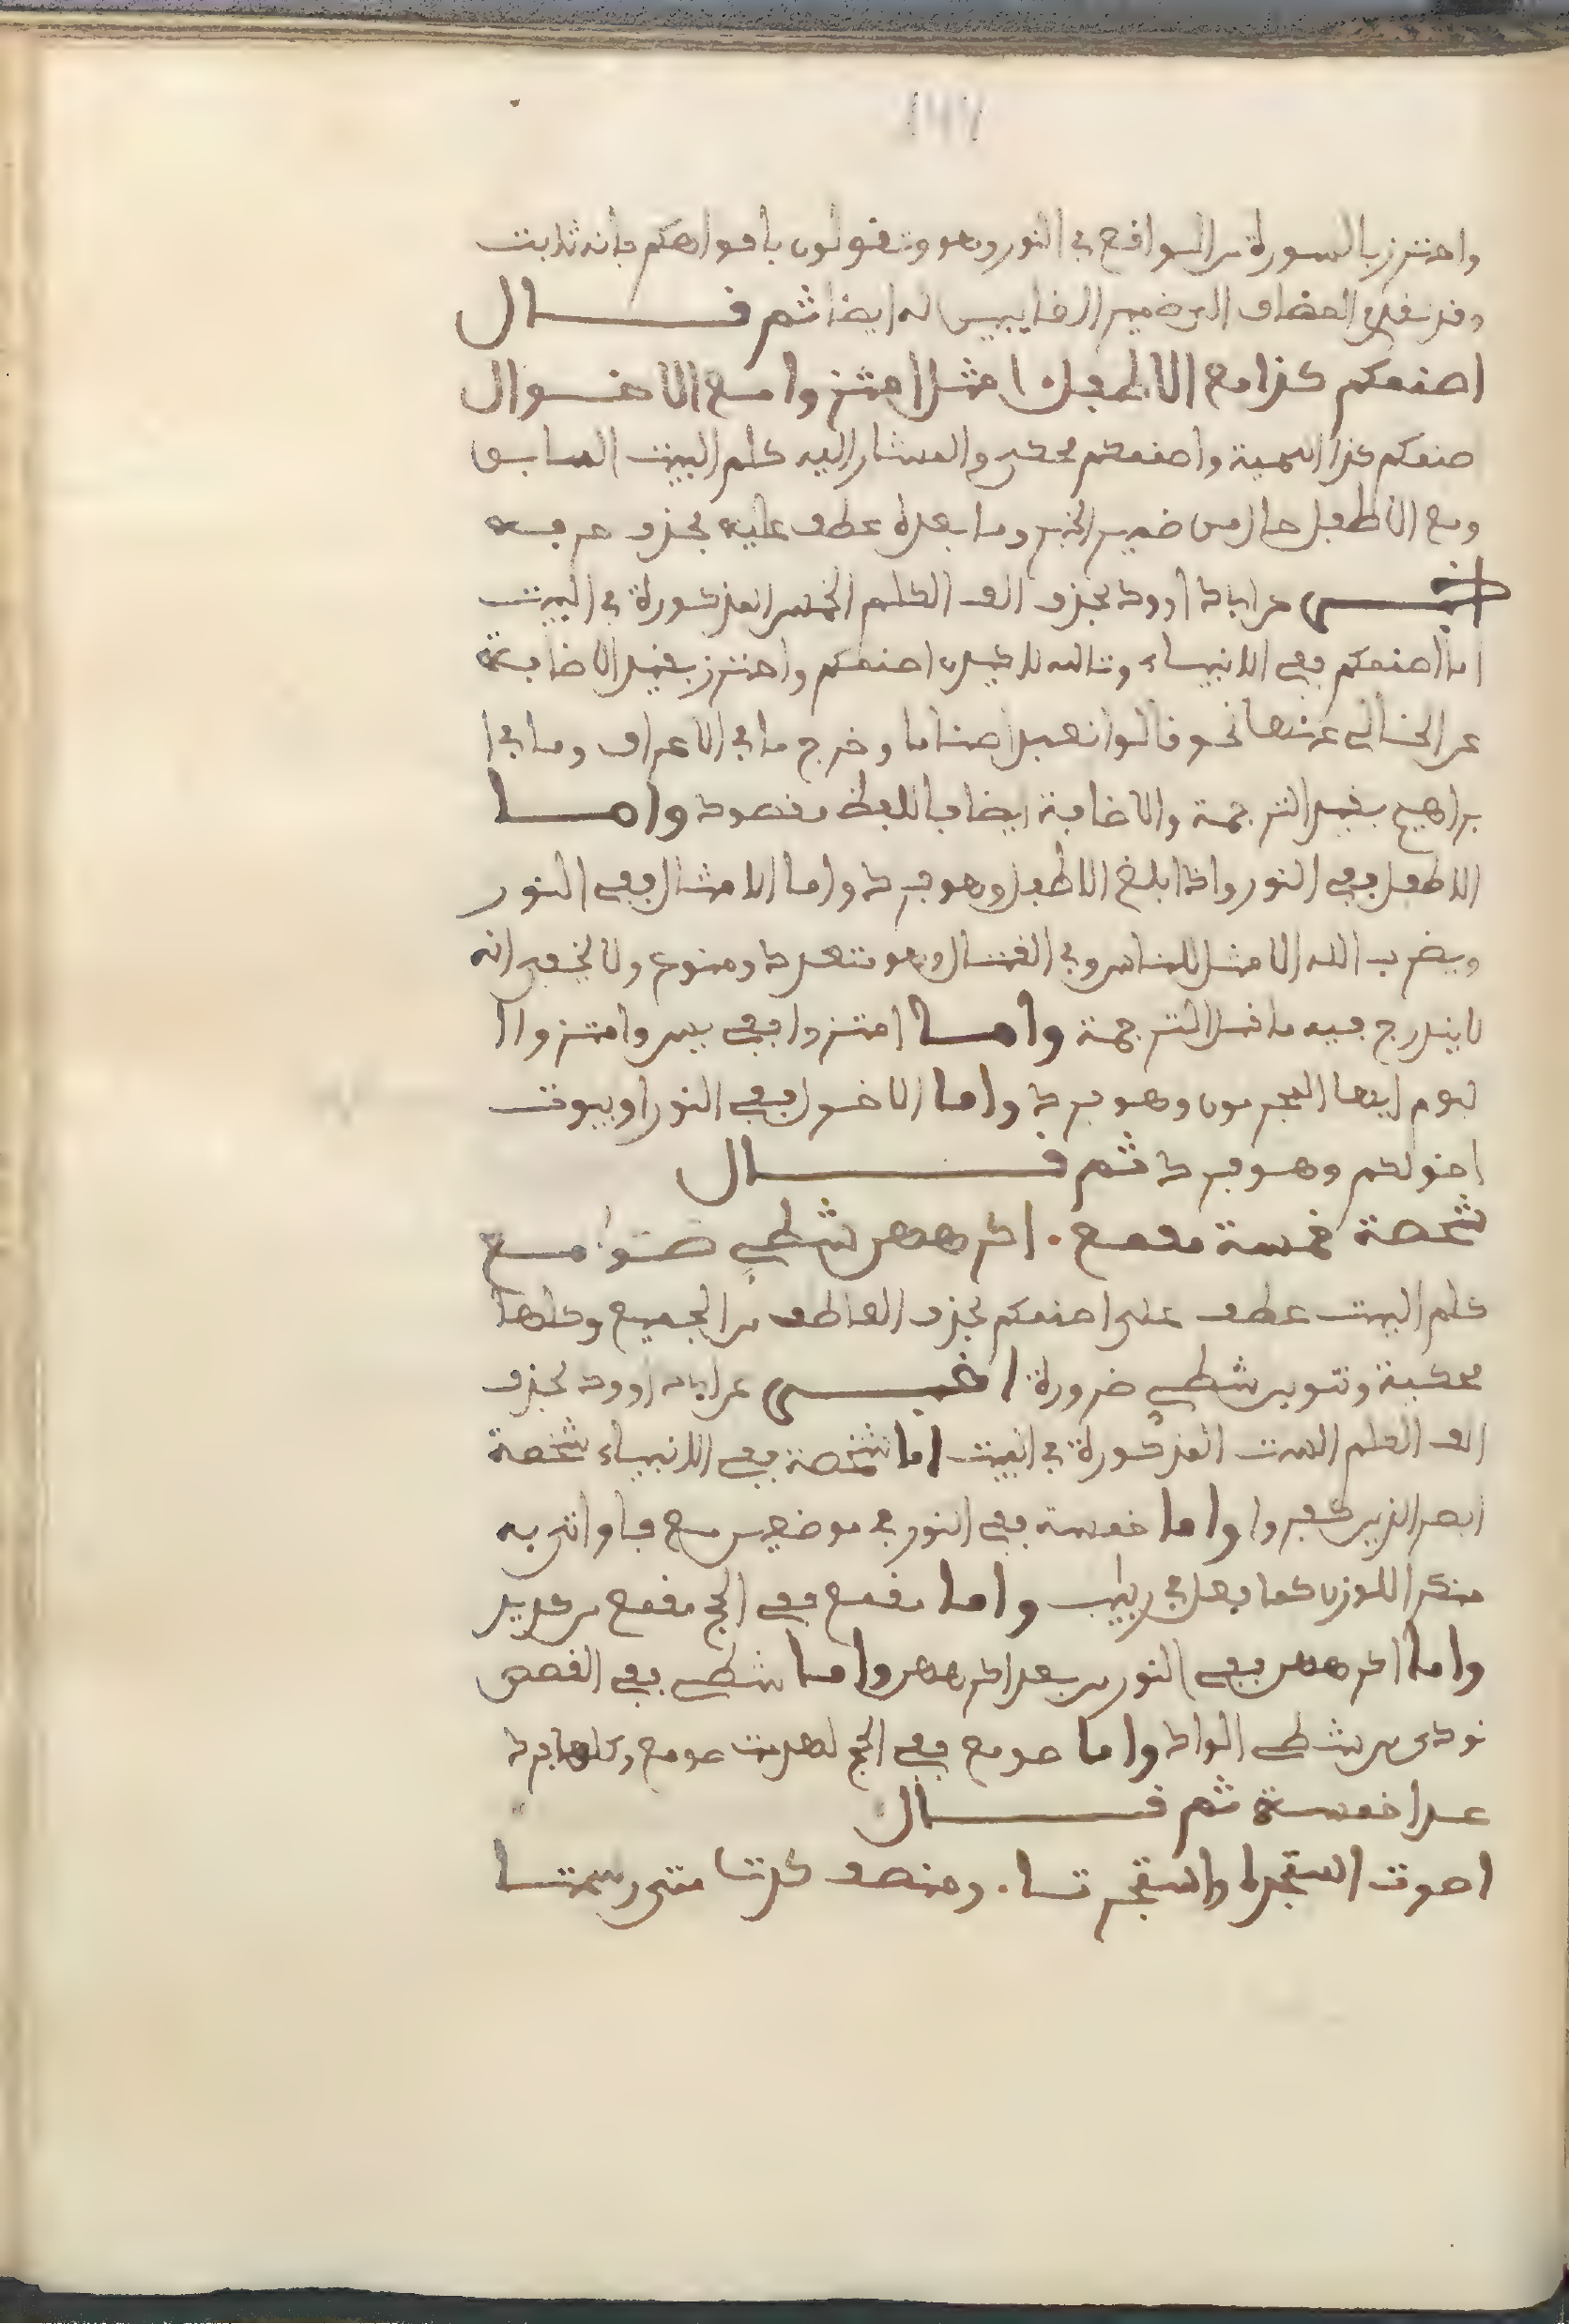 ١٩٧
واحترز بالسورة من الواقع في النور وهو وتقولون بافواهكم فانه ثابت
وقد تقدم المضاف الى ضمير الغايبين له ايضا ثم قال
اصنمكم كذا مع الاطفل . امثل امتزوا مع الاخوال
صنمكم كذا اسمية واصنمكم محكي والمشار اليه كلم البيت السابق
ومع الاطفل حال من ضمير الخبر وما بعده عطف عليه بحذف حرفه
اخبر عن ابي داوود بحذف الف الكلم الخمس المذكورة في البيت
اما اصنمكم ففي الانبياء وتالله لاكيدن اصنمكم واحترز بقيد الاضافة
عن الخالي عنها نحو قالوا نعبد اصناما وخرج ما في الاعراف وما في ا
براهيم بقيد الترجمة والاضافة ايضا فاللفظ مقصود واما
الاطفل ففي النور واذا بلغ الاطفل وهو فرد واما الامثال ففي النور
ويضرب الله الامثل للناس وفي القتال وهو متعدد ومنوع ولا يخفى انه
لا يندرج فيه ما قبل الترجمة واما امتزوا ففي يس وامتزوا ا
ليوم ايها المجرمون وهو فرد واما الاخوال ففي النور او بيوت
اخولكم وهو فرد ثم قال
شخصة خمسة مقمع . اكرههن شطي صومع
كلم البيت عطف على اصنمكم بحذف العاطف من الجميع وكلها
محكية وتنوين شطي ضرورة اخبر عن ابي داوود بحذف
الف الكلم الست المذكورة في البيت اما شخصة ففي الانبياء شخصة
ابصر الذين كفروا واما خمسة ففي النور في موضعين مع فا واتى به
منكرا للوزن كما فعل في ربيب واما مقمع ففي الحج مقمع من حديد
واما اكرههن ففي النور من بعد اكرههن واما شطي ففي القصص
نودي من شطي الواد واما صومع ففي الحج لهدمت صومع وكلها فرد
عدا خمسة ثم قال
اصوت استجره واستجرتا . ومنصف كدتا متى رسمتا